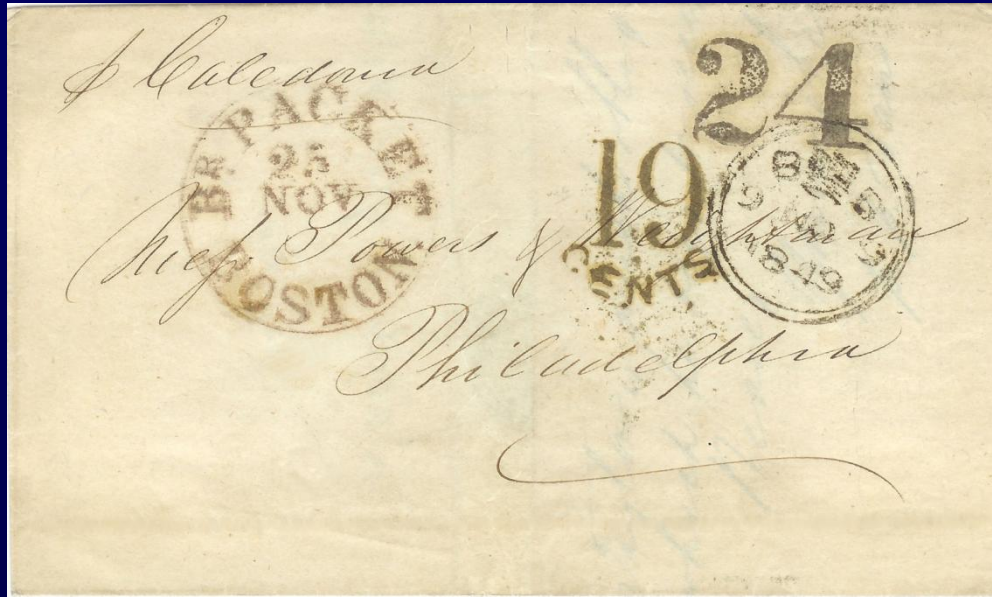 p Caledonia
24
Br PACKET
25
NOV
BOSTON
19
CENTS
1849
Mess Powers & Weightman
Philadelphia